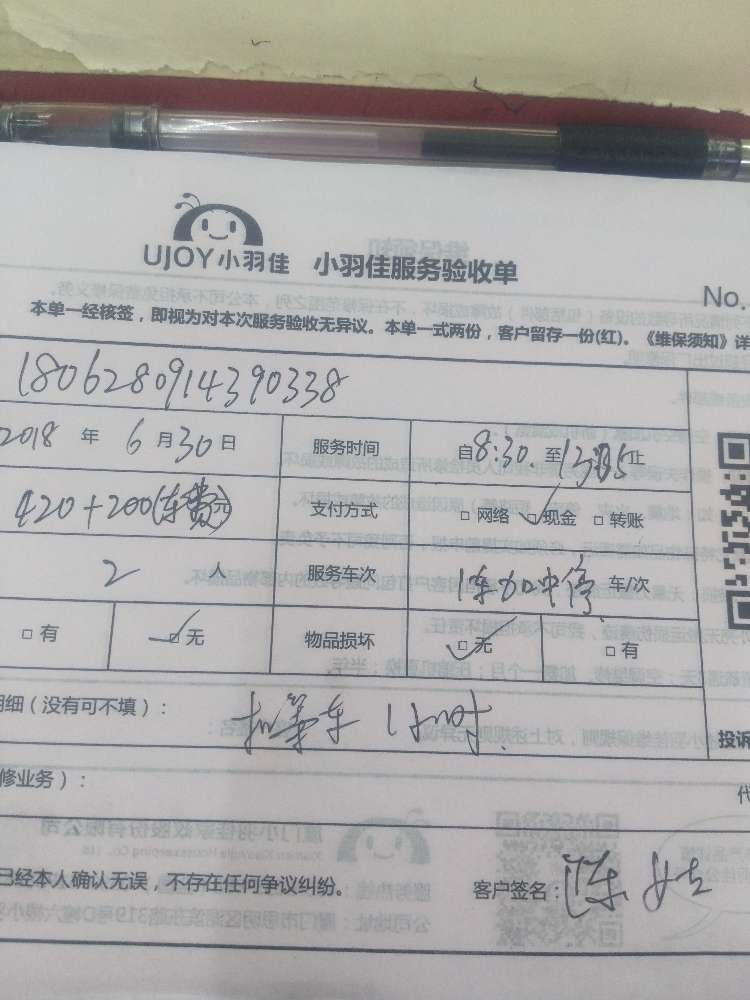 UJOY小羽佳 小羽佳服务验收单
No.
本单一经核签，即视为对本次服务验收无异议。本单一式两份，客户留存一份(红)。《维保须知》详
1806280914390338
2018 年 6 月 30 日 服务时间 自8:30 至 止
420+200(车费)元 支付方式 □ 网络 □ 现金 □ 转账
2 人 服务车次 1车加中停 车/次
□ 有 □ 无 物品损坏 □ 无 □ 有
明细（没有可不填）： 扣等车 1小时
投诉
修业务）：
已经本人确认无误，不存在任何争议纠纷。 客户签名：陈